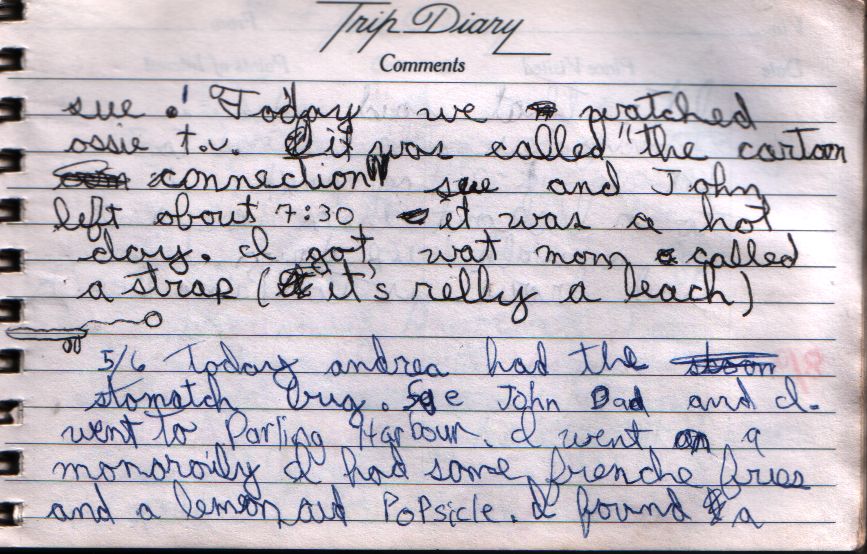 Trip Diary
Comments
sue. Today we watched
ossie t.v. it was called "the cartoon
connection" sue and John
left about 7:30 it was a hot
day. I got wat mom called
a strap (it's relly a leach)
5/6 Today andrea had the
stomatch bug. Sue John Dad and I.
went to Parling Harbour. I went on a
monoroily I had some frenche fries
and a lemon aid PoPsicle. I found a